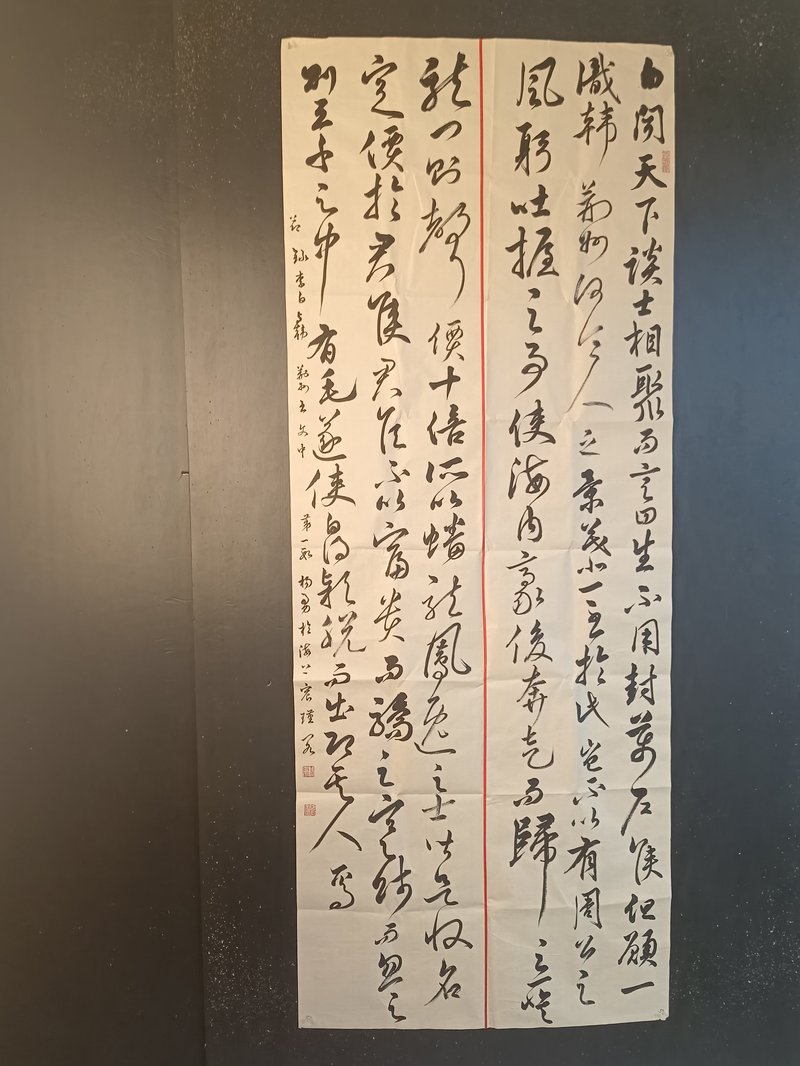 白闻天下谈士相聚而言曰生不用封萬户侯但願一
識韩荆州何令人之景慕一至於此豈不以有周公之
風躬吐握之事使海内豪俊奔走而歸之一登
龍门则聲價十倍所以蟠龍鳳逸之士皆欲收名
定價於君侯君侯不以富贵而驕之寒贱而忽之
则三千之中有毛遂使白得颖脱而出即其人焉
节録李白与韩荆州书文中第一段杨勇於海上